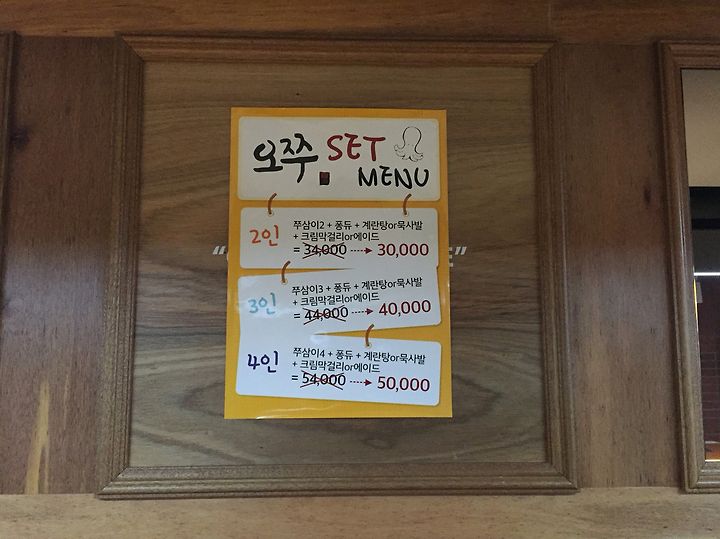 오쭈 SET
MENU
2인
쭈삼이2 + 퐁듀 + 계란탕or묵사발
+ 크림막걸리or에이드
= 34,000 → 30,000
3인
쭈삼이3 + 퐁듀 + 계란탕or묵사발
+ 크림막걸리or에이드
= 44,000 → 40,000
4인
쭈삼이4 + 퐁듀 + 계란탕or묵사발
+ 크림막걸리or에이드
= 54,000 → 50,000